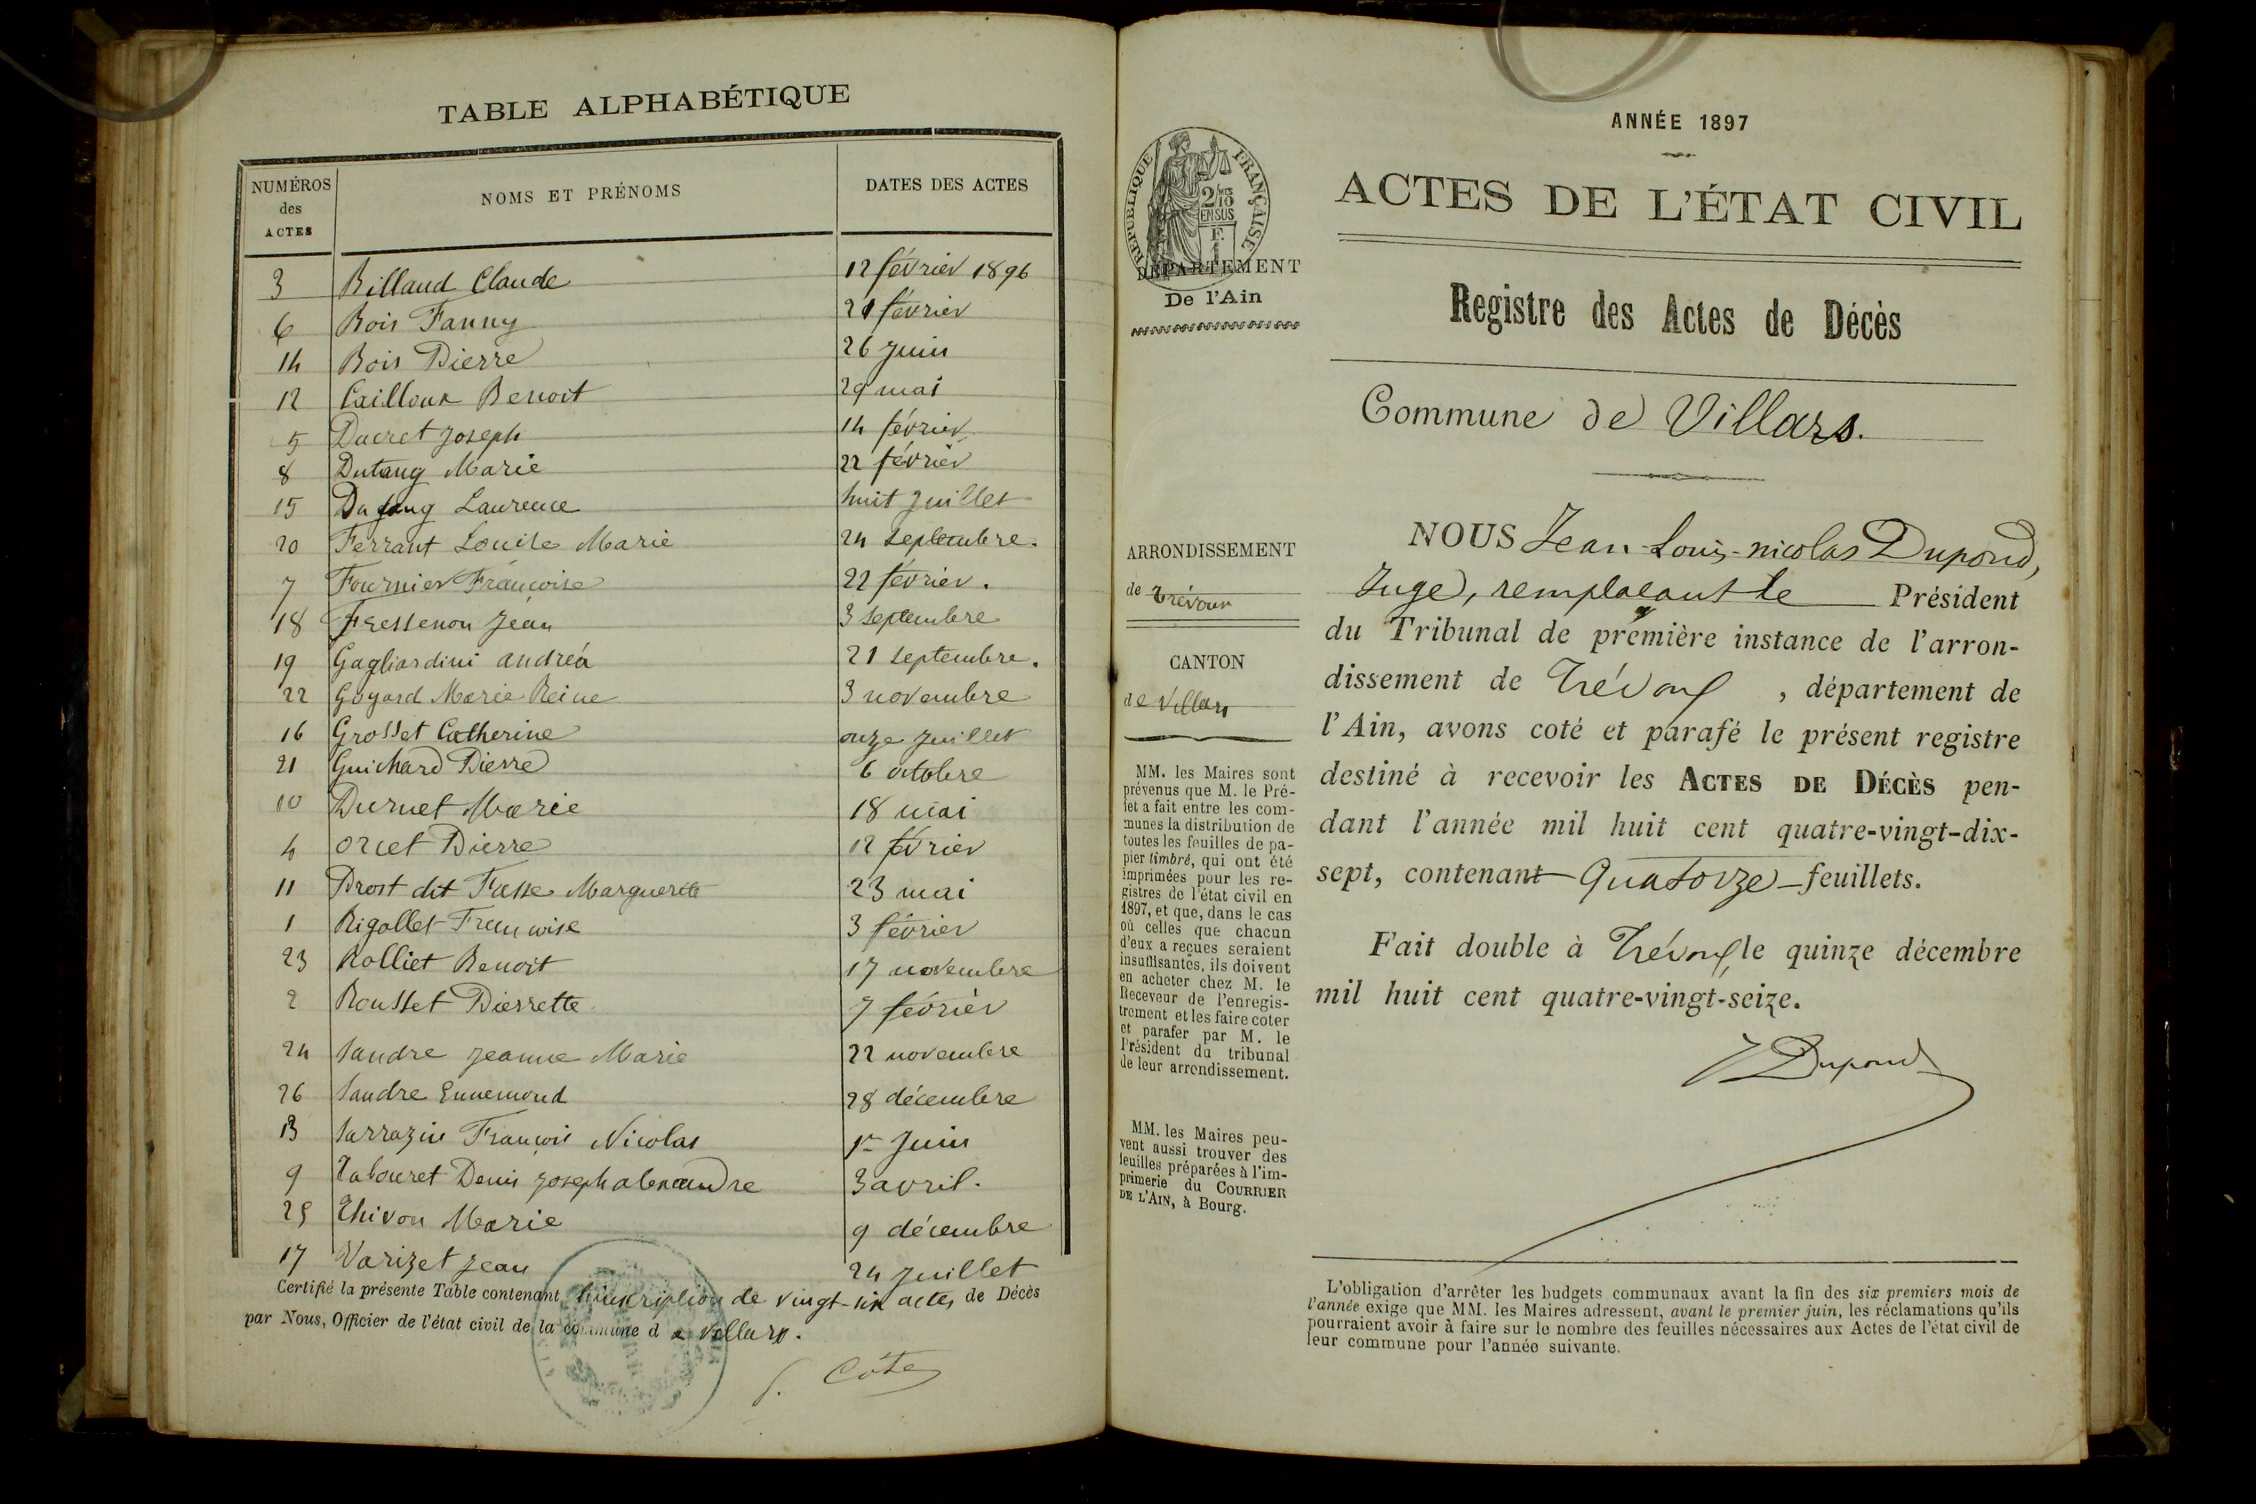 TABLE ALPHABÉTIQUE
NUMÉROS des ACTES
NOMS ET PRÉNOMS
DATES DES ACTES
3 Billaud Claude 12 février 1896
6 Bois Fanny 21 février
14 Bois Pierre 26 juin
12 Cailloux Benoit 29 mai
5 Ducret Joseph 14 février
8 Dutang Marie 22 février
15 Dutang Laurence huit juillet
20 Ferrant Louise Marie 24 septembre.
7 Fournier Françoise 22 février.
18 Fressenon Jean 3 septembre
19 Gagliardini andréa 21 septembre.
22 Goyard Marie Reine 3 novembre
16 Grosset Catherine onze juillet
21 Guichard Pierre 6 octobre
10 Durnet Marie 18 mai
4 orcet Pierre 12 février
11 Prost dit Fasse Marguerite 23 mai
1 Rigollet Françoise 3 février
23 Rolliet Benoit 17 novembre
2 Rousset Pierrette 7 février
24 Sandre Jeanne Marie 22 novembre
26 Sandre Ennemond 28 décembre
13 Sarrazin François Nicolas 1er Juin
9 Tabouret Denis Joseph alexandre 3 avril.
25 Thivon Marie 9 décembre
17 Varizet Jean 24 juillet
Certifié la présente Table contenant l'inscription de vingt-six actes de Décès
par Nous, Officier de l'état civil de la commune d e Villars.
Côte
RÉPUBLIQUE FRANÇAISE
2/10
EN SUS
F.
1
DÉPARTEMENT
De l'Ain
ARRONDISSEMENT
de Trévoux
CANTON
de Villars
MM. les Maires sont
prévenus que M. le Pré-
fet a fait entre les com-
munes la distribution de
toutes les feuilles de pa-
pier timbré, qui ont été
imprimées pour les re-
gistres de l'état civil en
1897, et que, dans le cas
où celles que chacun
d'eux a reçues seraient
insuffisantes, ils doivent
en acheter chez M. le
Receveur de l'enregis-
trement et les faire coter
et parafer par M. le
Président du tribunal
de leur arrondissement.
MM. les Maires peu-
vent aussi trouver des
feuilles préparées à l'im-
primerie du COURRIER
DE L'AIN, à Bourg.
ANNÉE 1897
ACTES DE L'ÉTAT CIVIL
Registre des Actes de Décès
Commune de Villars.
NOUS Jean-Louis-nicolas Dupond,
Juge, remplaçant le Président
du Tribunal de première instance de l'arron-
dissement de Trévoux , département de
l'Ain, avons coté et parafé le présent registre
destiné à recevoir les ACTES DE DÉCÈS pen-
dant l'année mil huit cent quatre-vingt-dix-
sept, contenant Quatorze feuillets.
Fait double à Trévoux, le quinze décembre
mil huit cent quatre-vingt-seize.
J Dupond
L'obligation d'arrêter les budgets communaux avant la fin des six premiers mois de
l'année exige que MM. les Maires adressent, avant le premier juin, les réclamations qu'ils
pourraient avoir à faire sur le nombre des feuilles nécessaires aux Actes de l'état civil de
leur commune pour l'année suivante.